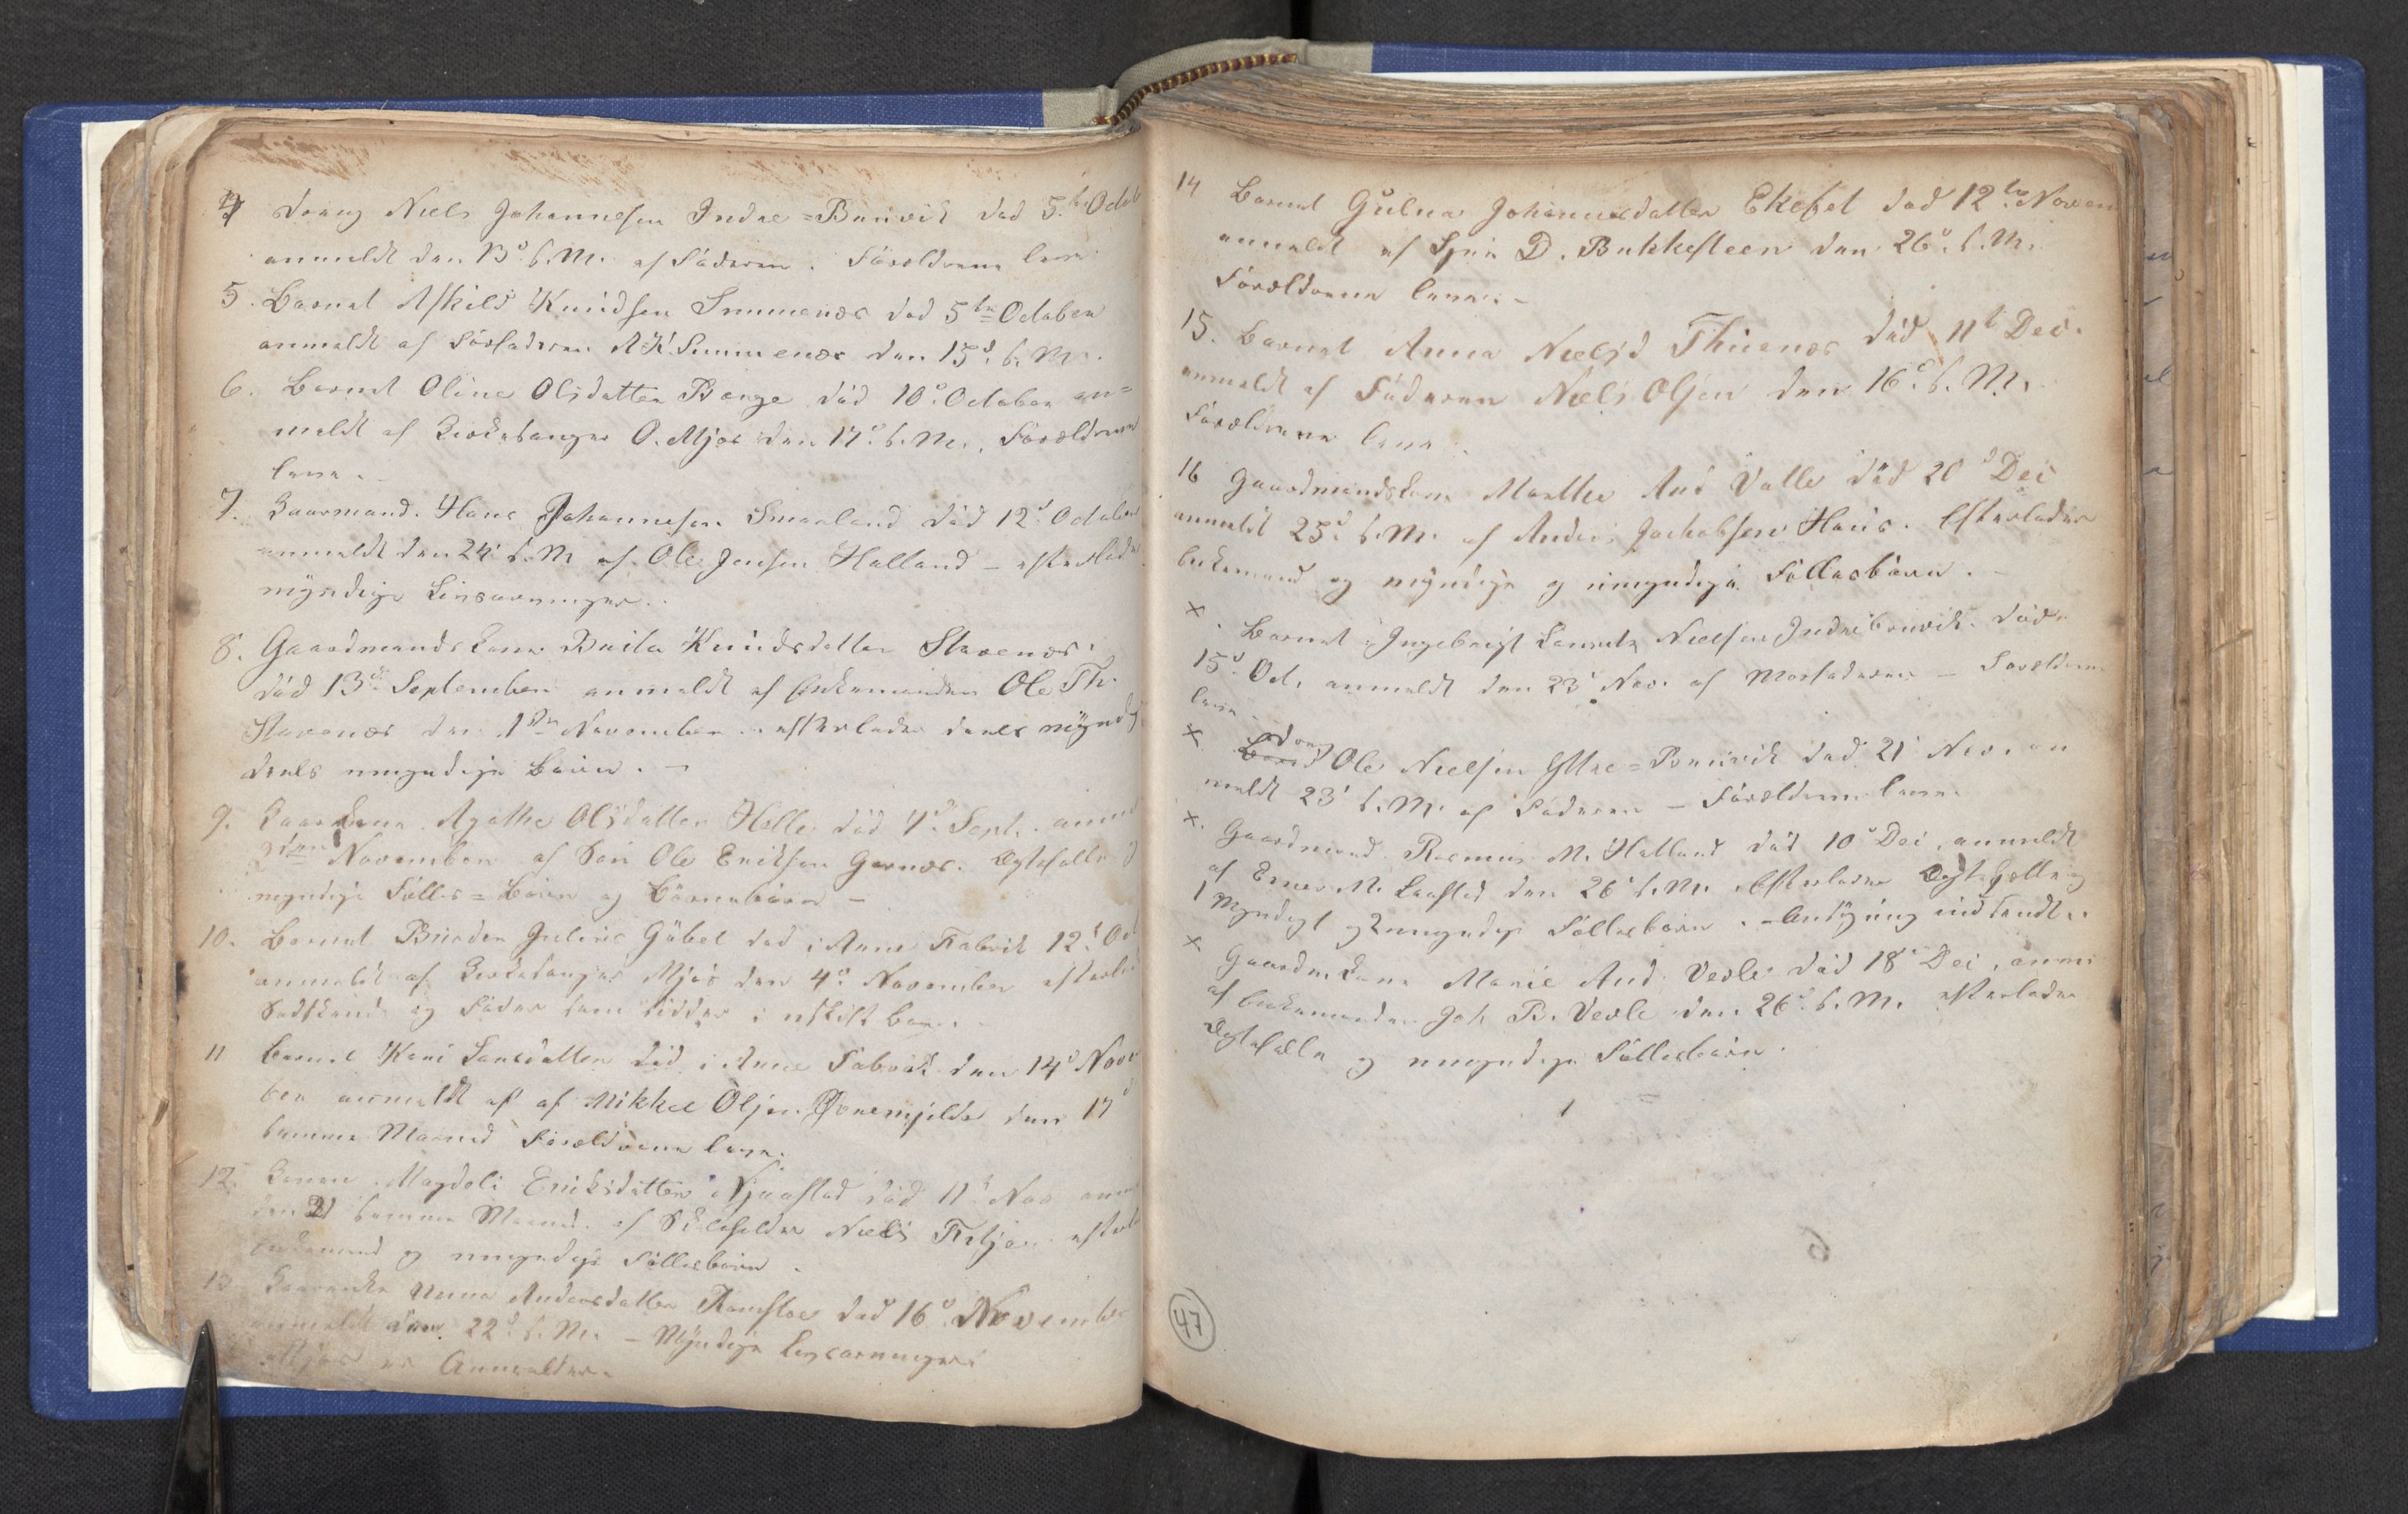 4 Dreng Niels Johannesen Indre=Bruvik død 5te Octob
anmeldt den 13d. s. M. af Faderen. Forældrene leve
5. Barnet Askild Knudsen Summenæs død 5te October
anmeldt af Forfaderen A K. Summenæs den 15d. s. M.
6. Barnet Oline Olsdatter Berge død 10d. October an=
meldt af Kirkesanger O. Mjøs den 17d. s. M. Forældrene
leve.
7. Kaarmand Hans Johannesen Smaaland død 12d. October
anmeldt den 24d s. M af Ole Jensen Halland – efterlader
myndige Livsarvinger.
8. Gaardmandskone Brita Knudsdatter Stavenæs.
død 13d. September anmeldt af Enkemanden Ole Th.
Stavenæs den 1ste November. efterlader deels mynd
deels umyndige Børn. –
9. Kaarkone Agathe Olsdatter Helle død 4d. Sept. anm
2den November af Søn Ole Eriksen Garnæs. Ægtefælle
myndige Fælles=Børn og Børnebørn –
10. Barnet Julius Gübel død i Arne Fabrik 12d. Oct
anmeldt af Kirkesanger Mjøs den 4d. November efterl
Sødskende og Fader som sidder i uskift Bo.
11 Barnet Kari Larsdatter død i Arne Fabrik den 14d Nove
ber anmeldt af af Mikkel Olsen den 17d
samme Maaned Forældrene leve.
12. Konen Magdeli Eriksdatter Njaastad død 11d Nov anm
den 21 samme Maaned af Niels efterl
Enkemand og umyndige Fællesbørn.
13 Anna Andersdatter død 16d November
anmeldt den 22d. s. M. – Myndige Livsarvinger
Mjøs er Anmelder.
14 Barnet Gulua Johannesdatter Ekefet død 12te Novem
anmeldt af D. Bukkesteen den 26d. s. M.
Forældrene leve. –
15. Barnet Anna Nielsd Thuenæs død 11t Dec.
anmeldt af Faderen Niels Olsen den 16d. s. M.
Forældrene leve.
16 Gaardmandskone Marthe And Valle død 20d Dec
anmeldt 25d. s. M. af Anders Jachobsen Haus. Efterlader
Enkemand og myndige og umyndige Fællesbørn. –
x. Barnet Ingebrigt Nielsen Indrebruvik. død
15d. Oct. anmeldt den 23d Nov. af Morfaderen – Forældrene
leve.
x. Barnet Dreng Ole Nielsen Yttre=Bruvik død 21d Nov. an
meldt 23d s. M. af Faderen – Forældrene leve.
x. Gaardmand Rasmus M. Halland død 10d Dec. anmeldt
af M. den 26d s. M. Efterlader Ægtefælle og
1 Myndigt og 2 umyndige Fællesbørn. – indsendt.
x Gaardm. Kone Marie And. Vevle død 18d Dec. anm
af Enkemanden Joh. B. Vevle den 26d. s. M. efterlader
Ægtefælle og umyndige Fællesbørn.
47